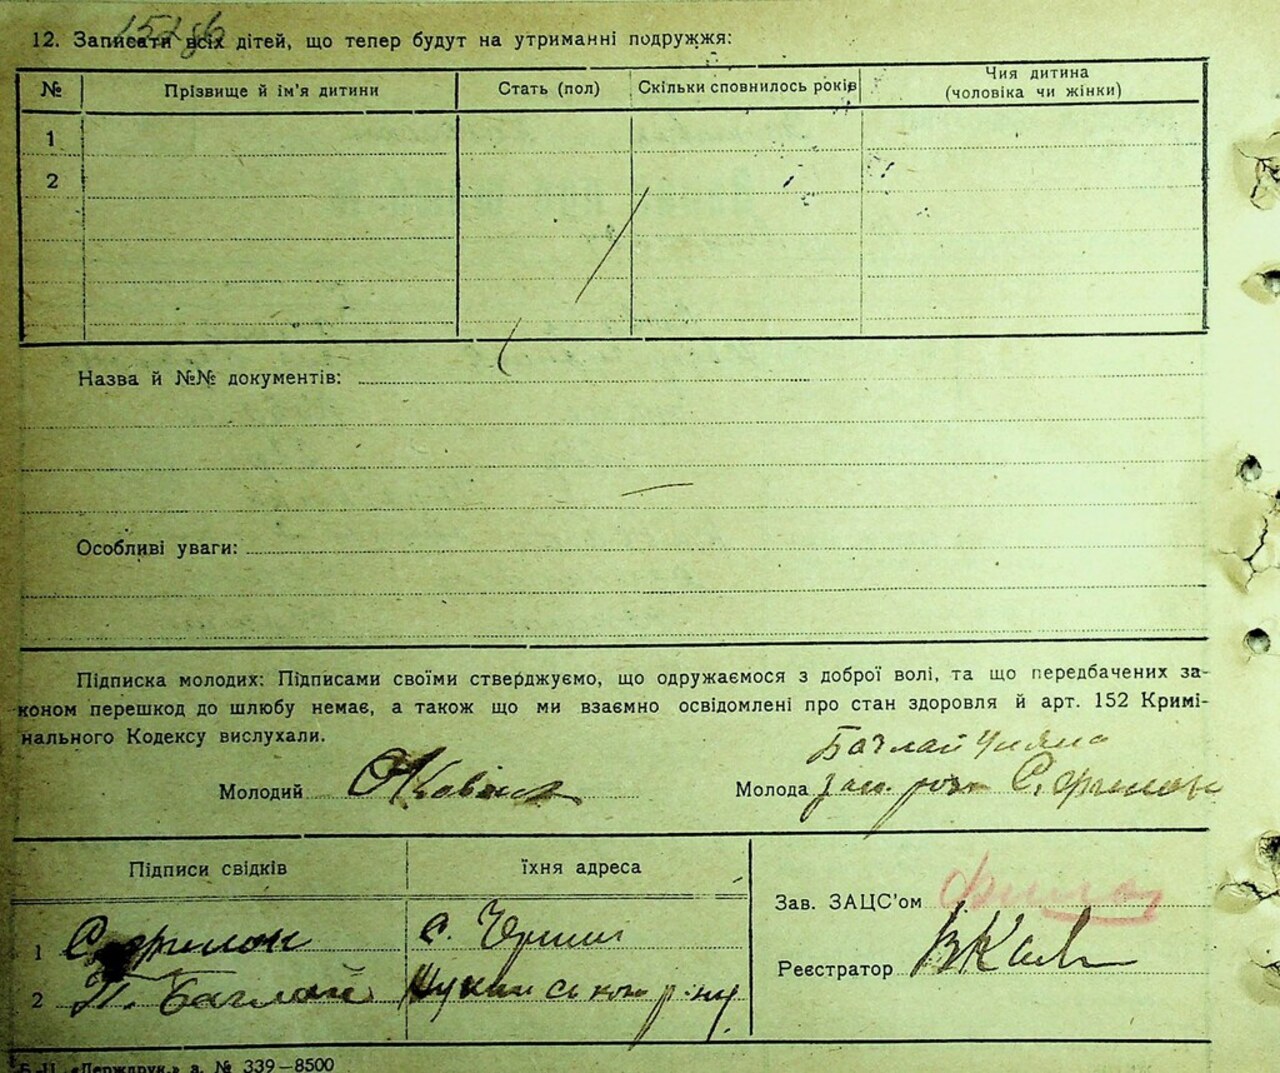 12. Записати всіх дітей, що тепер будут на утриманні подружжя:
№ Прізвище й ім'я дитини Стать (пол) Скільки сповнилось років Чия дитина (чоловіка чи жінки)
1
2
Назва й №№ документів:
Особливі уваги:
Підписка молодих: Підписами своїми стверджуємо, що одружаємося з доброї волі, та що передбачених за-
коном перешкод до шлюбу немає, а також що ми взаємно освідомлені про стан здоровля й арт. 152 Кримі-
нального Кодексу вислухали.
Баглай Уляна
Молодий
Молода
Підписи свідків Їхня адреса
Зав. ЗАЦС'ом
1 с.
Реєстратор
2 П. Баглай
Б.-Ц. «Держдрук.» з. № 339—8500